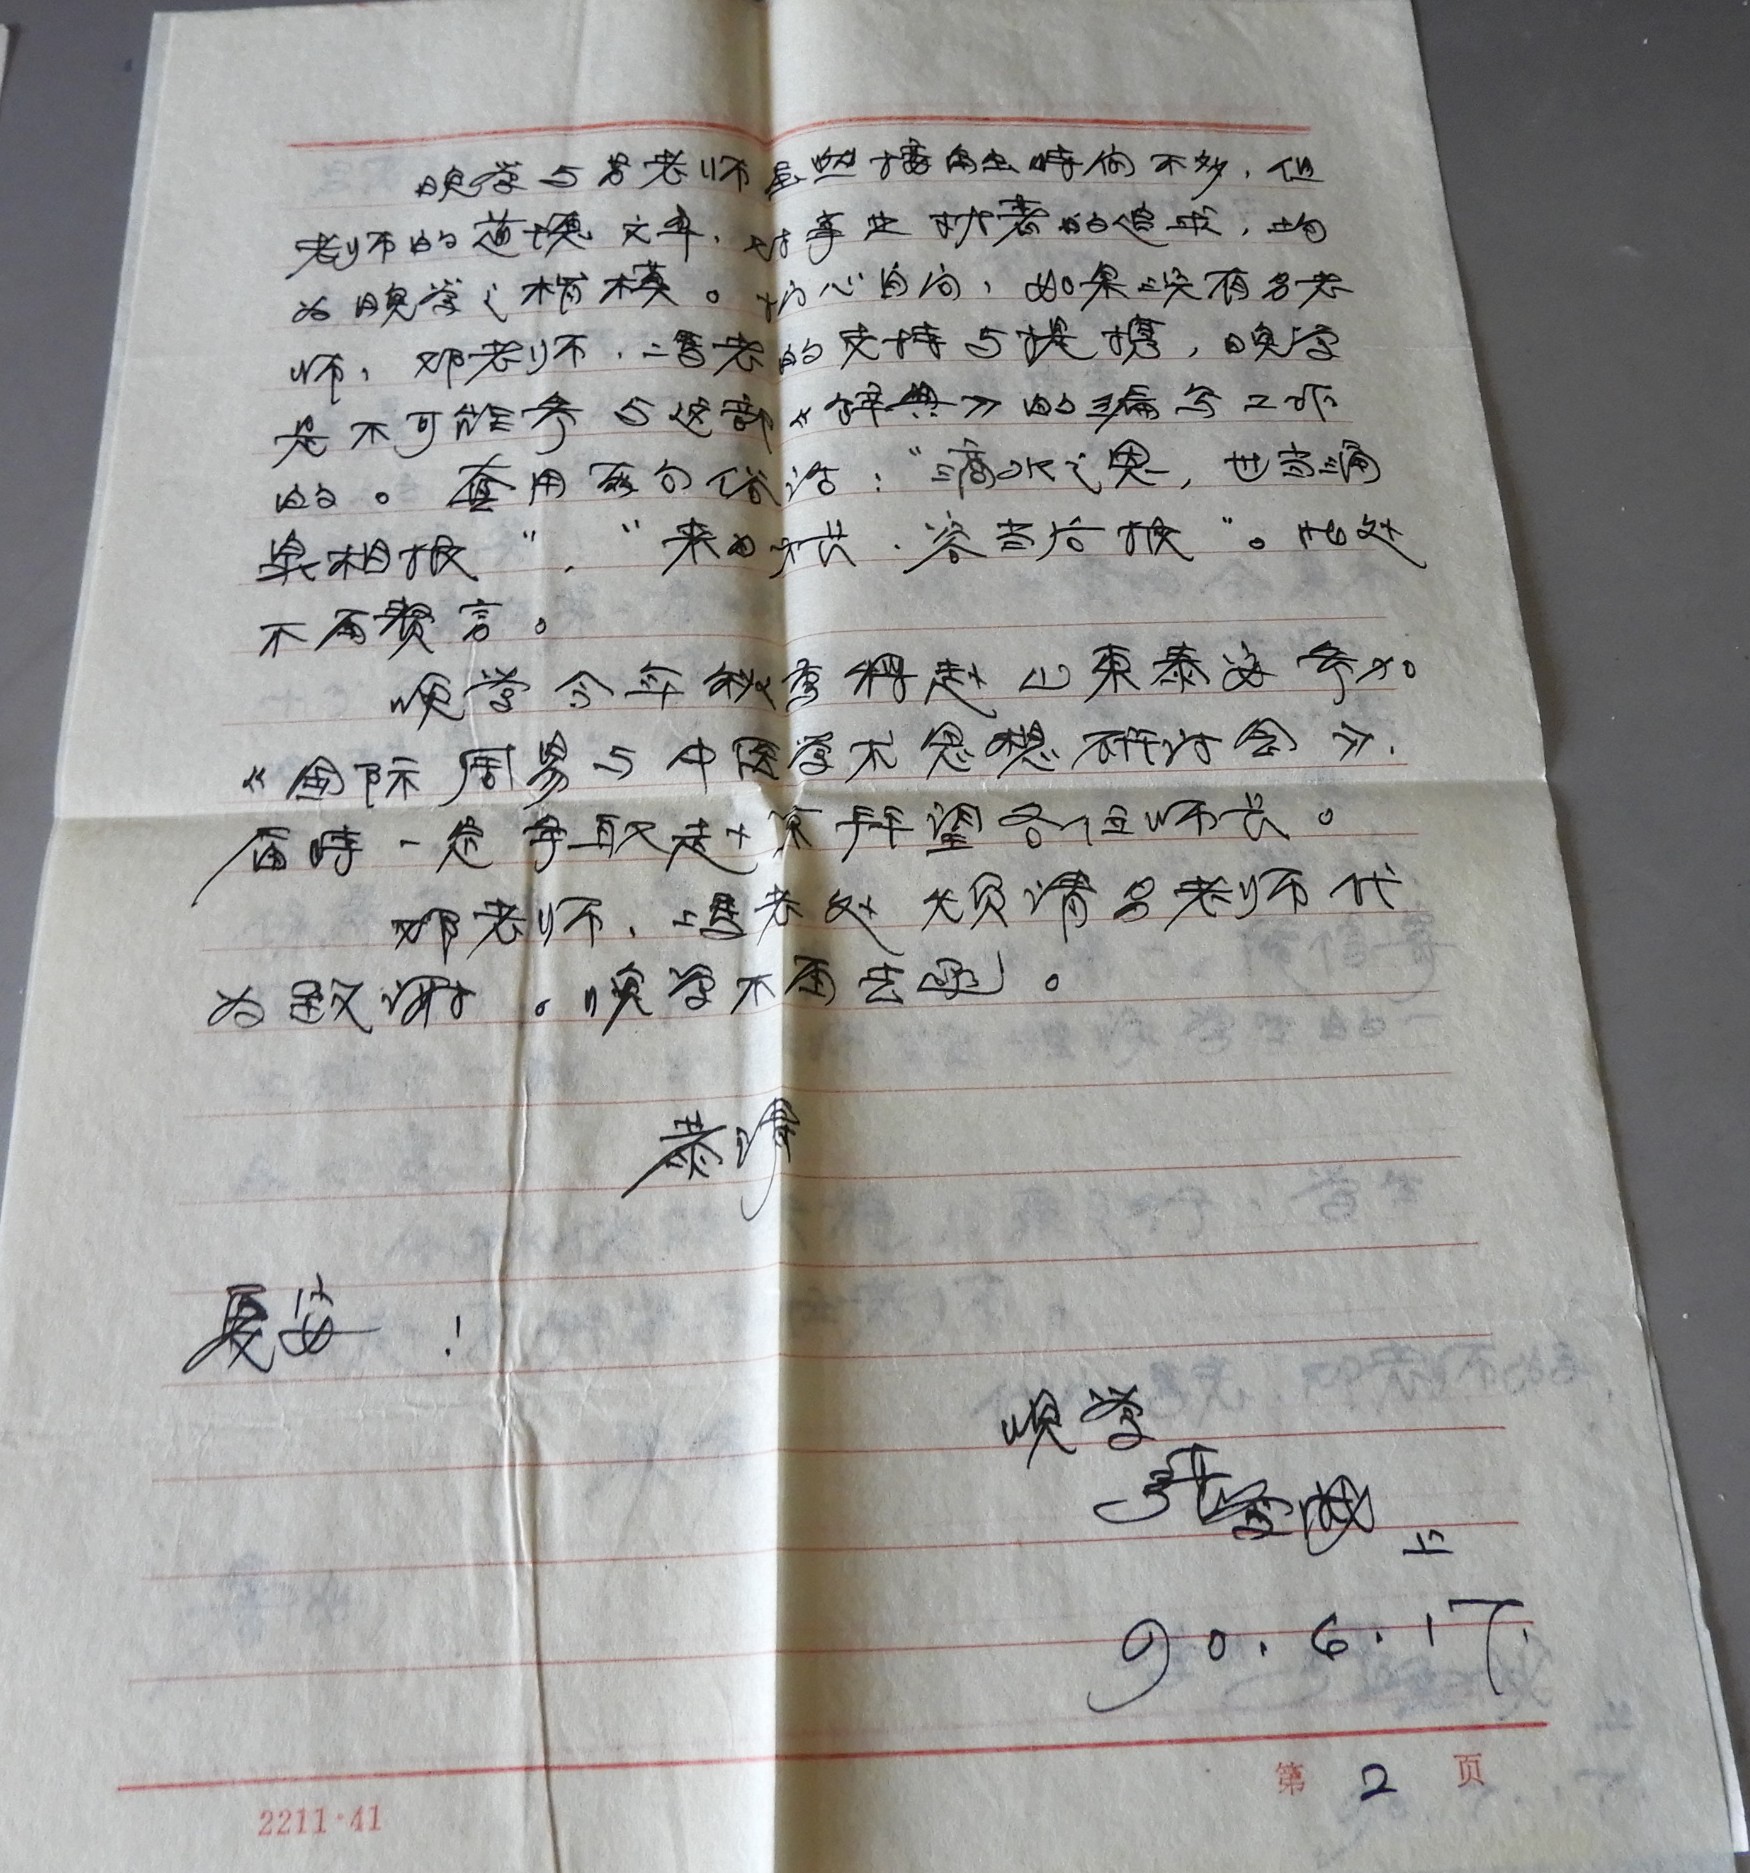 晚学与吕老师虽然接触时间不多，但
老师的道德文章，对事业执著的追求，均
为晚学之楷模。扪心自问，如果没有吕老
师，邓老师，冯老的支持与提携，晚学
是不可能参与这部《辞典》的编写工作
的。套用两句俗话："滴水之恩，也当涌
泉相报"，"来日方长，容当后报"。此处
不再赘言。
晚学今年秋季将赴山东泰安参加
《国际周易与中医学术思想研讨会》，
届时一定争取赴京拜望各位师长。
邓老师，冯老处烦请吕老师代
为致谢。晚学不再去函。
恭请
夏安！
晚学
张 上
90.6.17.
第 2 页
2211·41